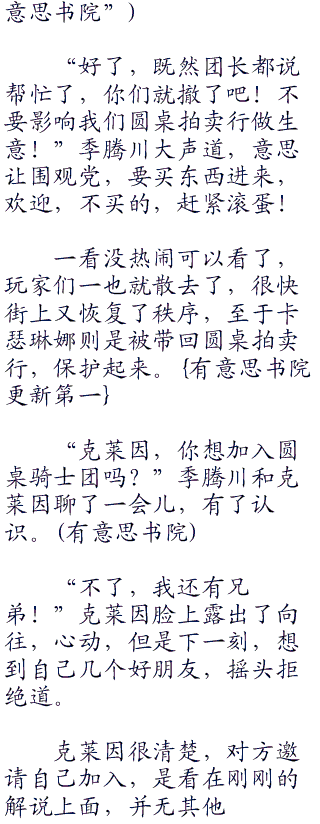 意思书院”)
“好了，既然团长都说
帮忙了，你们就撤了吧！不
要影响我们圆桌拍卖行做生
意！”季腾川大声道，意思
让围观党，要买东西进来，
欢迎，不买的，赶紧滚蛋！
一看没热闹可以看了，
玩家们一也就散去了，很快
街上又恢复了秩序，至于卡
瑟琳娜则是被带回圆桌拍卖
行，保护起来。{有意思书院
更新第一}
“克莱因，你想加入圆
桌骑士团吗？”季腾川和克
莱因聊了一会儿，有了认
识。(有意思书院)
“不了，我还有兄
弟！”克莱因脸上露出了向
往，心动，但是下一刻，想
到自己几个好朋友，摇头拒
绝道。
克莱因很清楚，对方邀
请自己加入，是看在刚刚的
解说上面，并无其他